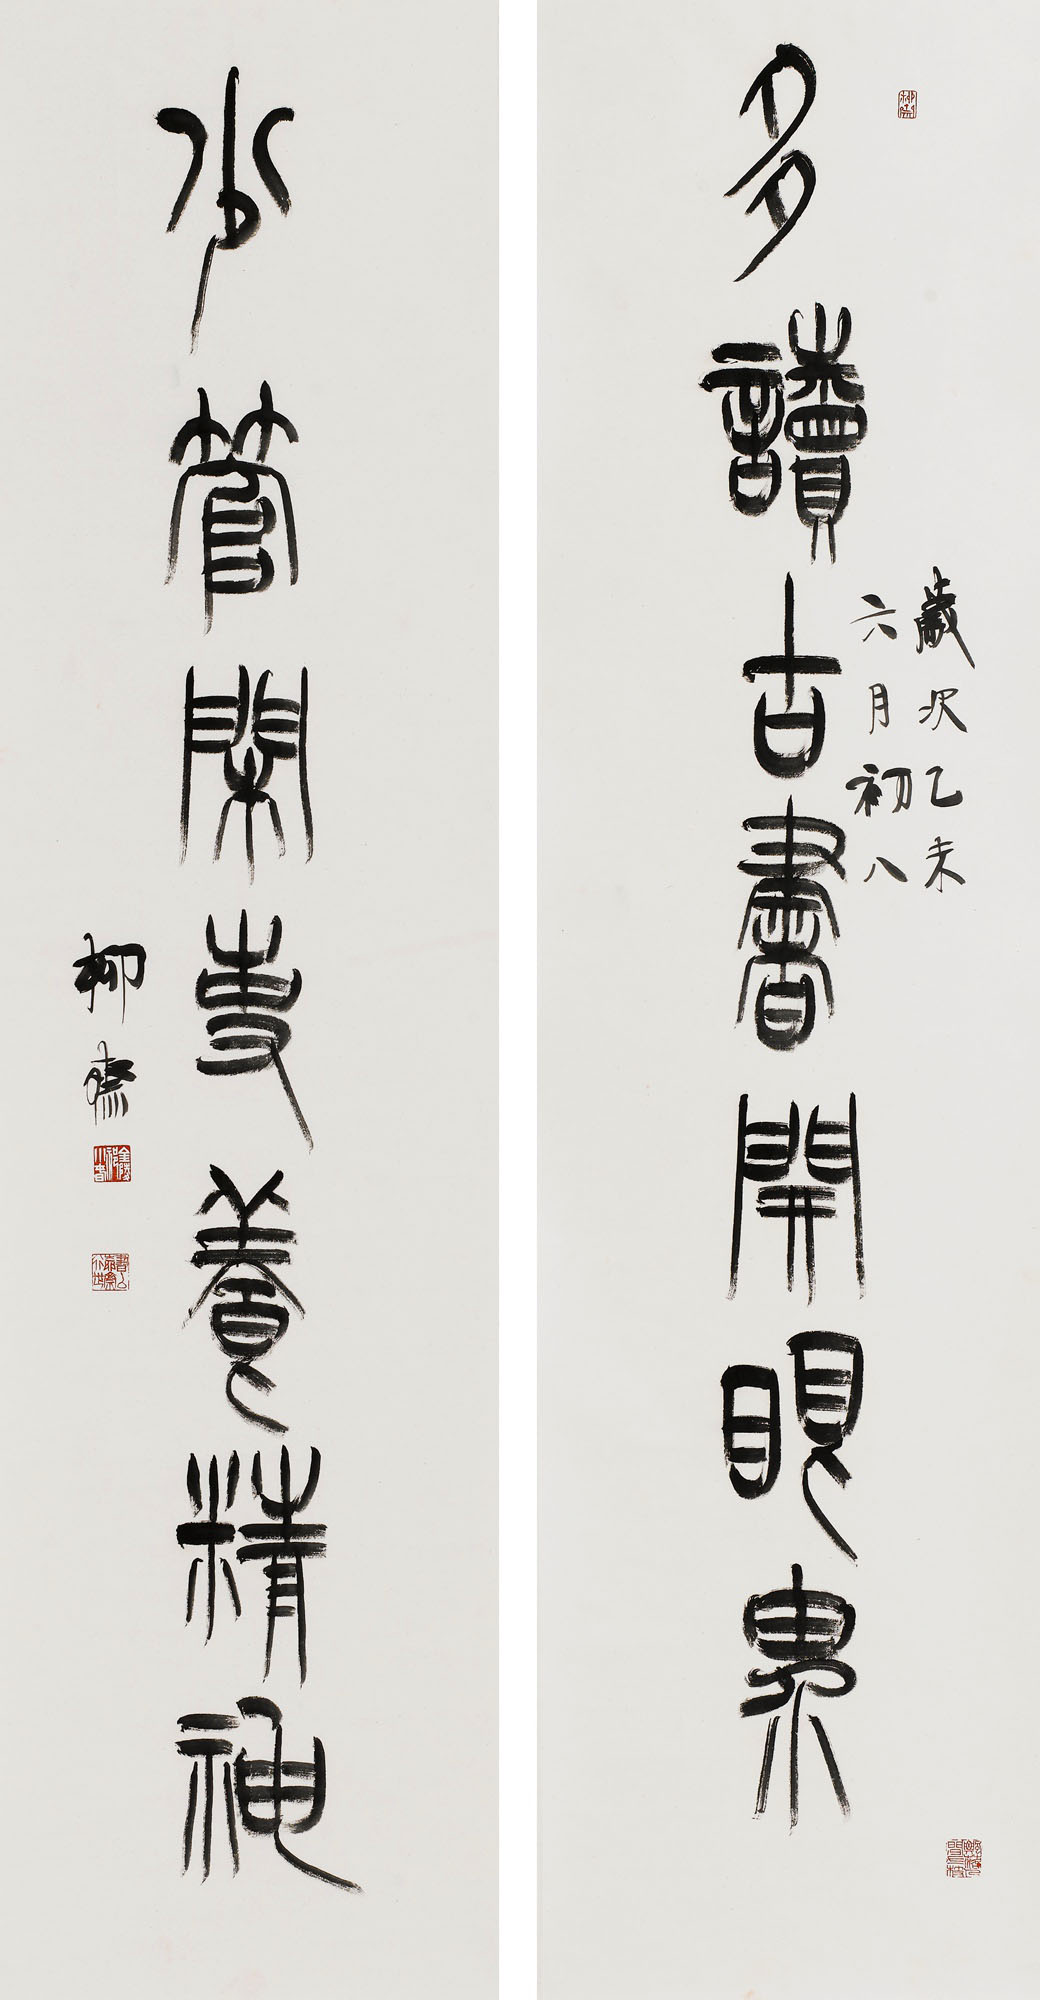 多讀古書開眼界
歲次乙未
六月初八
少管閑事養精神